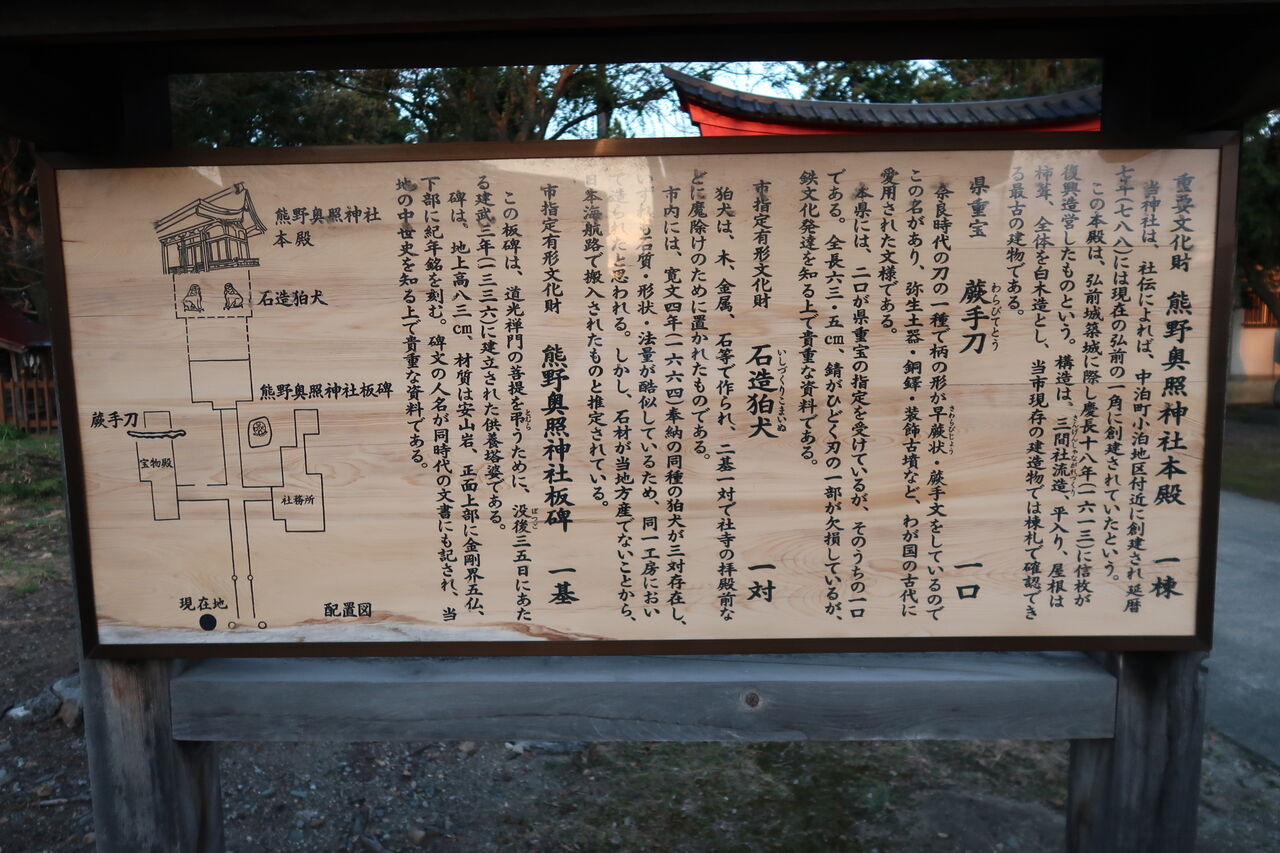 重要文化財　熊野奥照神社本殿　一棟
当神社は、社伝によれば、中泊町小泊地区付近に創建され延暦
七年(七八八)には現在の弘前の一角に創建されていたという。
この本殿は、弘前城築城に際し慶長十八年(一六一三)に信枚が
復興造営したものという。構造は、三間社流造、平入り、屋根は
杮葺、全体を白木造とし、当市現存の建造物では棟札で確認でき
る最古の建物である。
さんげんしゃながれづくり
県重宝　蕨手刀　一口
わらびてとう
奈良時代の刀の一種で柄の形が早蕨状・蕨手文をしているので
この名があり、弥生土器・銅鐸・装飾古墳など、わが国の古代に
愛用された文様である。
さわらびじょう
本県には、二口が県重宝の指定を受けているが、そのうちの一口
である。全長六三・五㎝、錆がひどく刃の一部が欠損しているが、
鉄文化発達を知る上で貴重な資料である。
市指定有形文化財　石造狛犬　一対
いしづくりこまいぬ
狛犬は、木、金属、石等で作られ、二基一対で社寺の拝殿前な
どに魔除けのために置かれたものである。
市内には、寛文四年(一六六四)奉納の同種の狛犬が三対存在し、
いずれも石質・形状・法量が酷似しているため、同一工房におい
て造られたと思われる。しかし、石材が当地方産でないことから、
日本海航路で搬入されたものと推定されている。
市指定有形文化財　熊野奥照神社板碑　一基
この板碑は、道光禅門の菩提を弔うために、没後三五日にあた
る建武三年(一三三六)に建立された供養塔婆である。
とむら
ぼつご
碑は、地上高八三㎝、材質は安山岩、正面上部に金剛界五仏、
下部に紀年銘を刻む。碑文の人名が同時代の文書にも記され、当
地の中世史を知る上で貴重な資料である。
熊野奥照神社
本殿
石造狛犬
熊野奥照神社板碑
蕨手刀
宝物殿
社務所
現在地
配置図